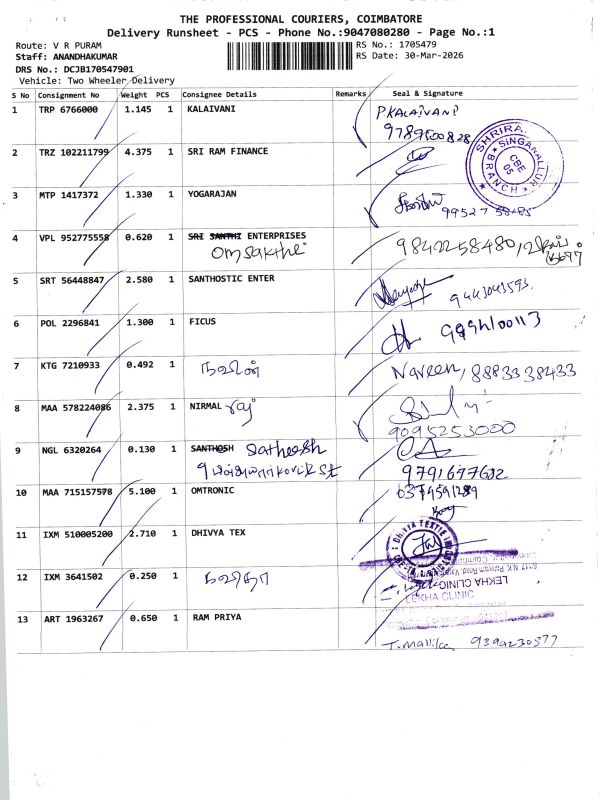 THE PROFESSIONAL COURIERS, COIMBATORE
Delivery Runsheet - PCS - Phone No.:9047080280 - Page No.:1
Route: V R PURAM RS No.: 1705479
Staff: ANANDHAKUMAR RS Date: 30-Mar-2026
DRS No.: DCJB170547901
Vehicle: Two Wheeler Delivery
S No Consignment No Weight PCS Consignee Details Remarks Seal & Signature
1 TRP 6766000 1.145 1 KALAIVANI P KALAIVANI
9789500828
2 TRZ 102211799 4.375 1 SRI RAM FINANCE
SINGANALLUR CBE 05 BRANCH
3 MTP 1417372 1.330 1 YOGARAJAN
99527 58485
4 VPL 952775558 0.620 1 SRI SANTHI ENTERPRISES 9842258480
Omsakthi
5 SRT 56448847 2.580 1 SANTHOSTIC ENTER 9443043593
6 POL 2296841 1.300 1 FICUS
7 KTG 7210933 0.492 1 நவீன் Naveen, 8883338433
8 MAA 578224086 2.375 1 NIRMAL raj
9095253000
9 NGL 6320264 0.130 1 SANTHOSH Satheesh
9791677632
10 MAA 715157578 5.100 1 OMTRONIC
11 IXM 510005200 2.710 1 DHIVYA TEX
DHIVYA TEXTILE
12 IXM 3641502 0.250 1
LEKHA CLINIC
LEKHA CLINIC
13 ART 1963267 0.650 1 RAM PRIYA
T. Mallika 9394230377